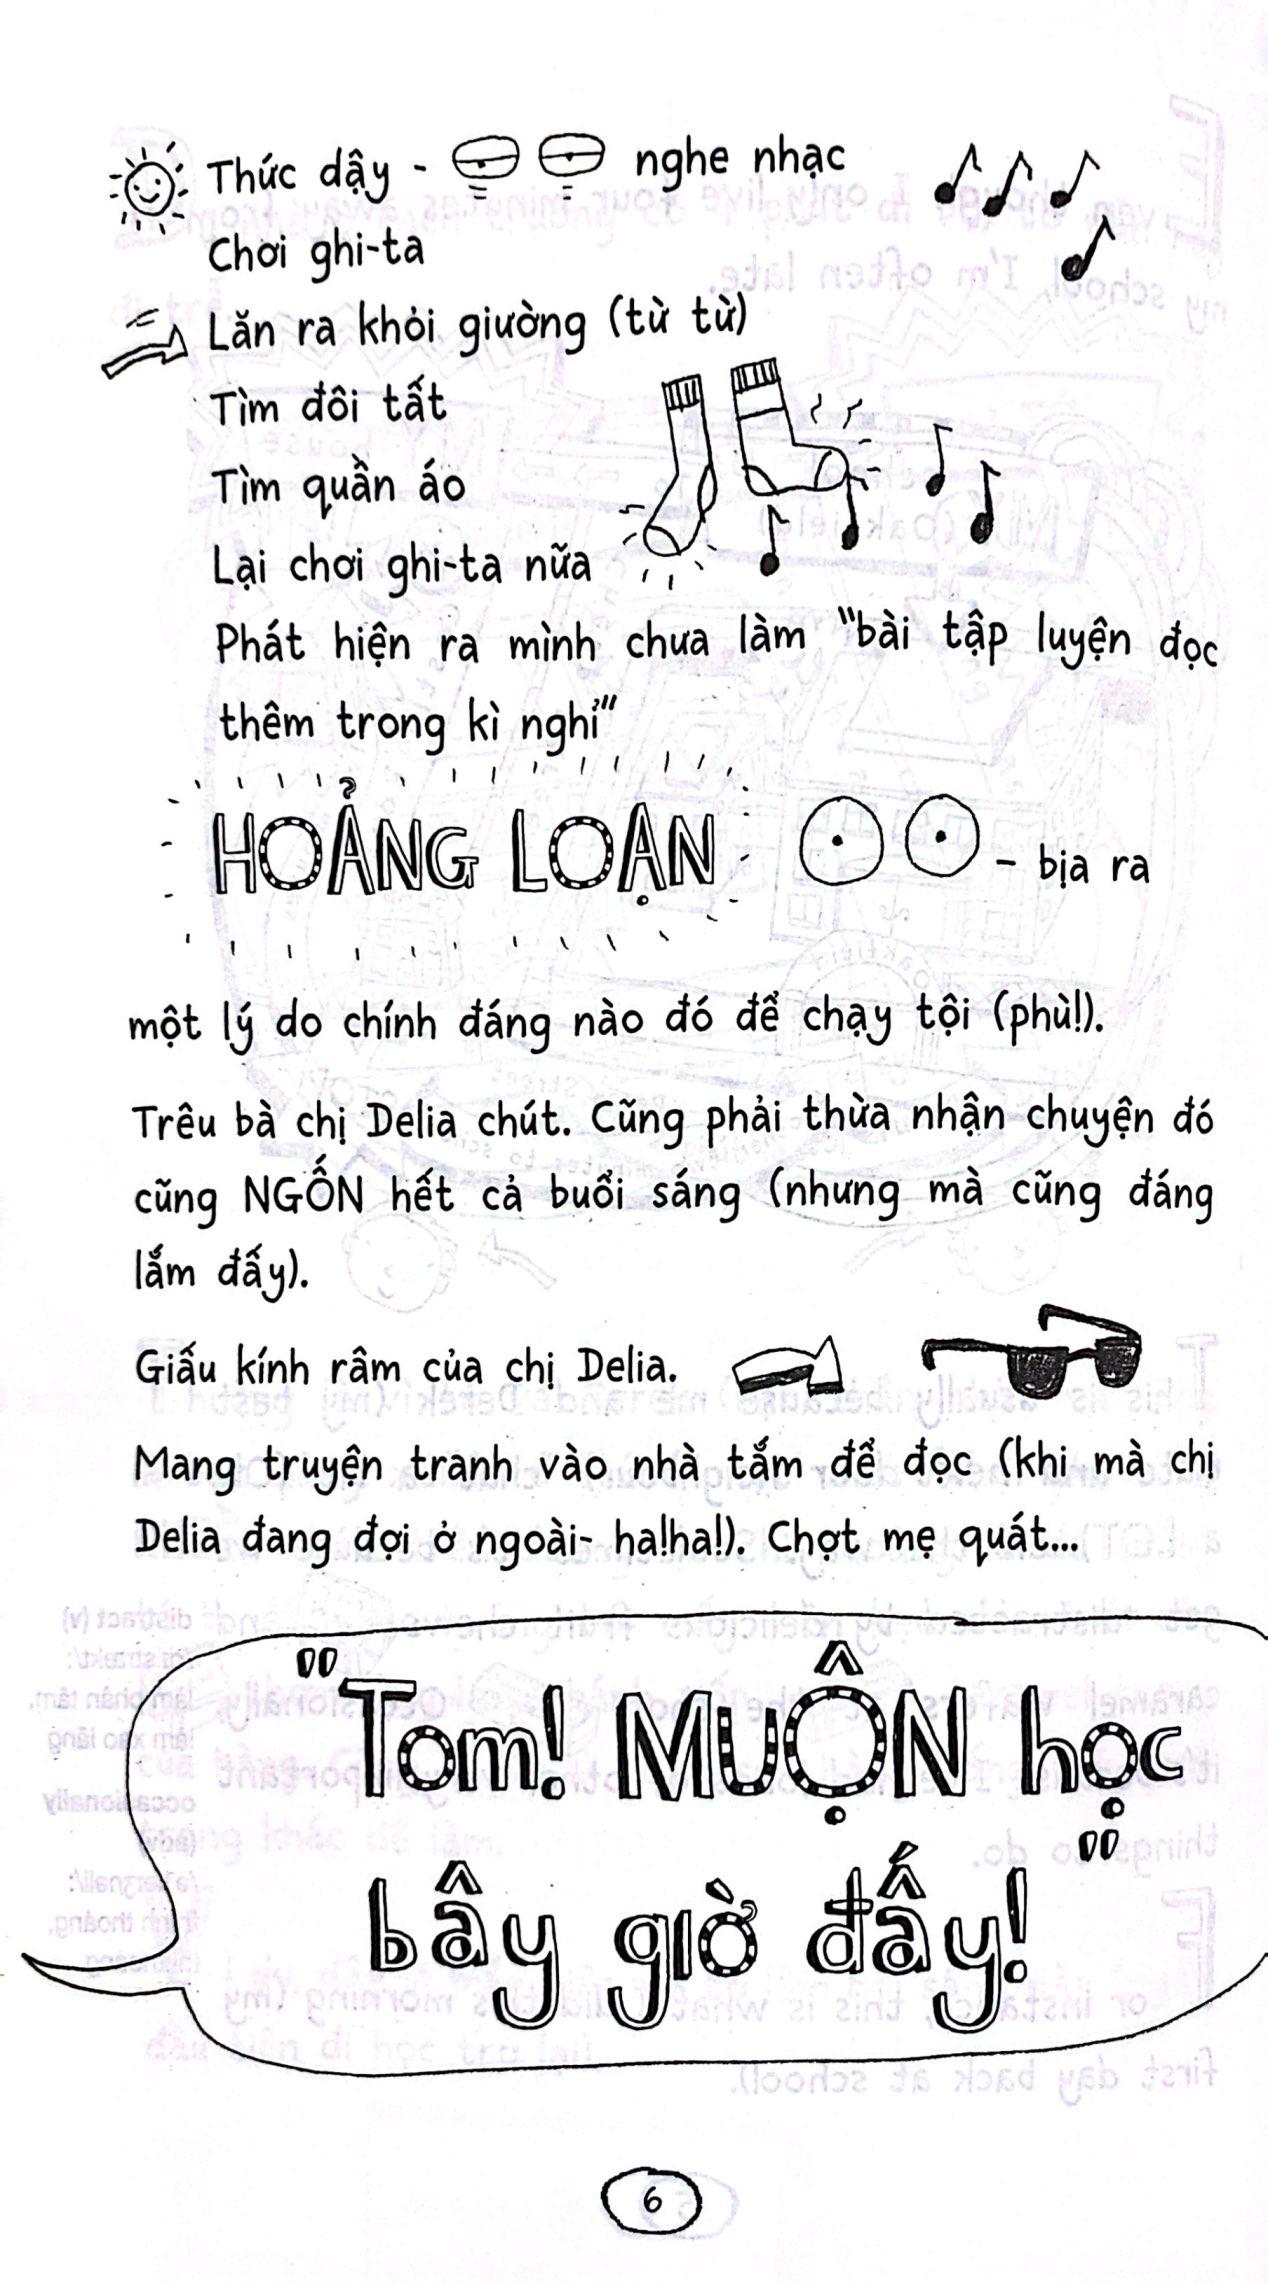 Thức dậy - nghe nhạc
Chơi ghi-ta
Lăn ra khỏi giường (từ từ)
Tìm đôi tất
Tìm quần áo
Lại chơi ghi-ta nữa
Phát hiện ra mình chưa làm "bài tập luyện đọc
thêm trong kì nghỉ"
HOẢNG LOẠN - bịa ra
một lý do chính đáng nào đó để chạy tội (phù!).
Trêu bà chị Delia chút. Cũng phải thừa nhận chuyện đó
cũng NGỐN hết cả buổi sáng (nhưng mà cũng đáng
lắm đấy).
Giấu kính râm của chị Delia.
Mang truyện tranh vào nhà tắm để đọc (khi mà chị
Delia đang đợi ở ngoài- ha!ha!). Chợt mẹ quát...
"Tom! MUỘN học
bây giờ đấy!"
6